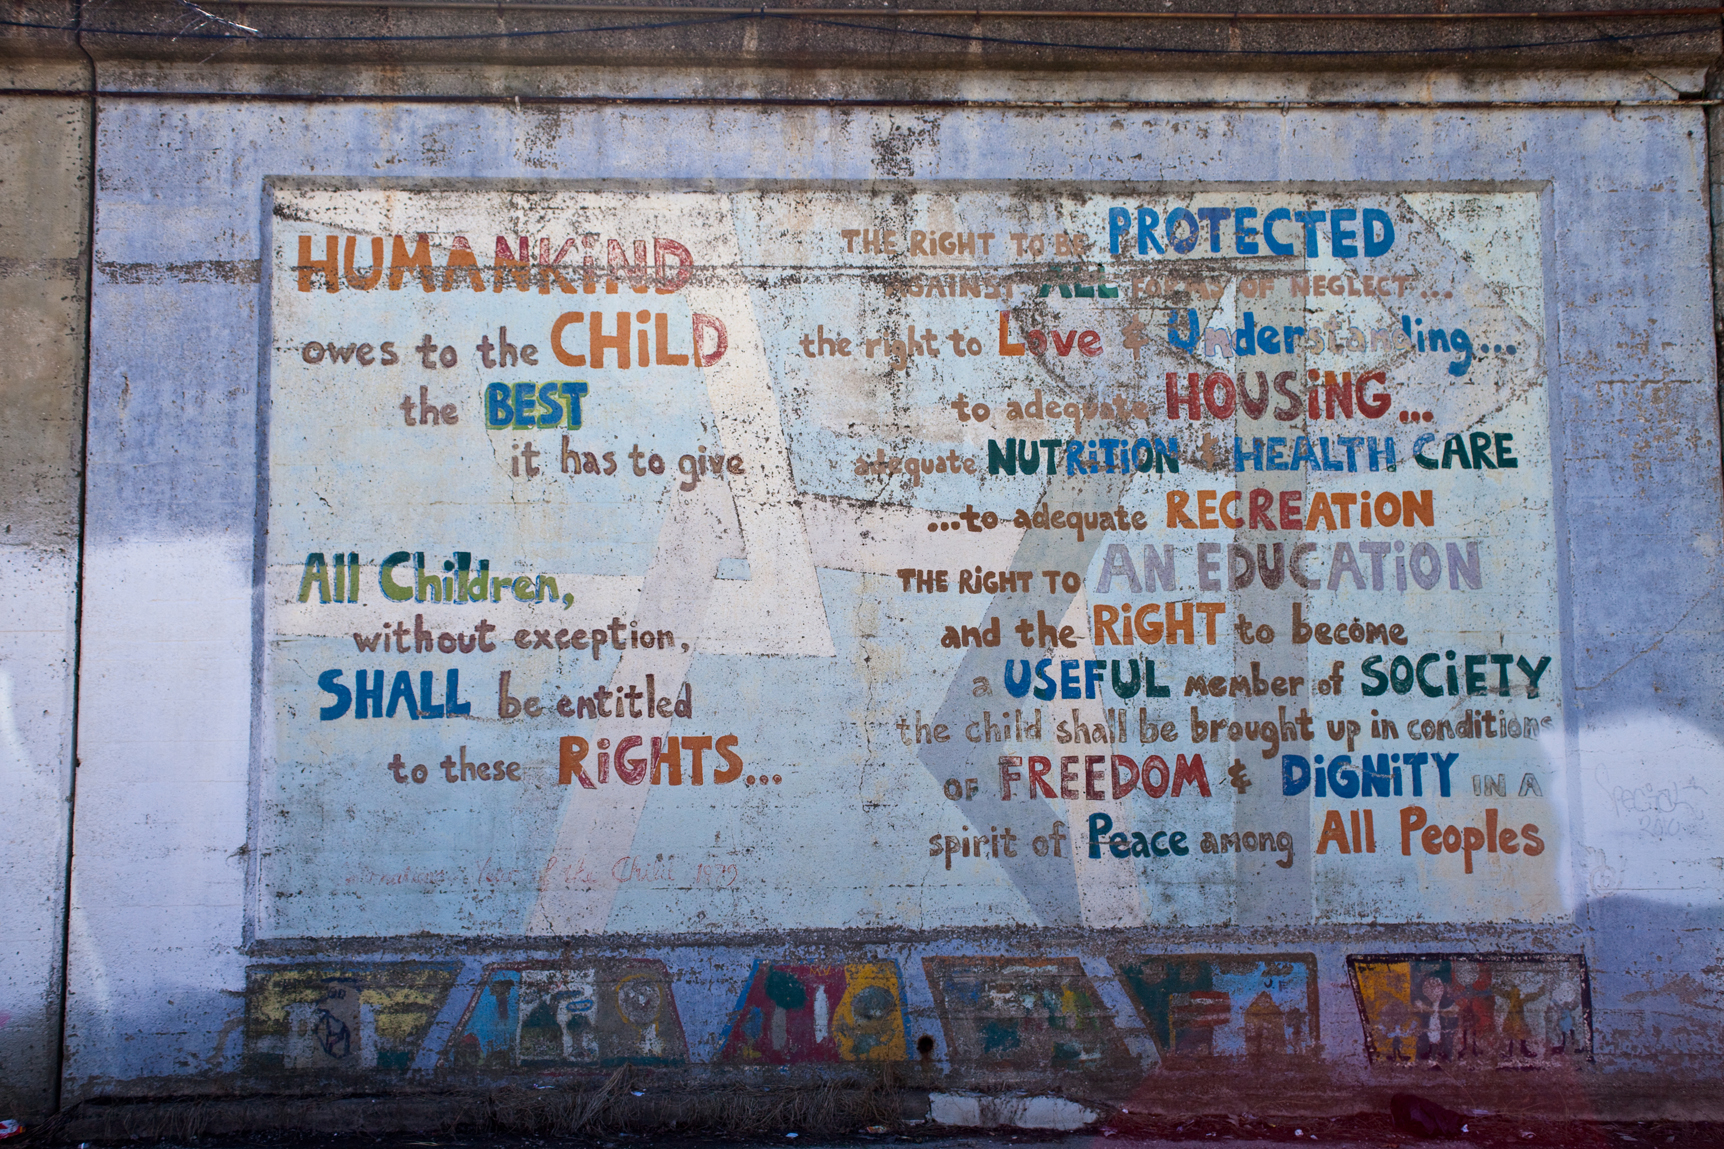 HUMANKiND
owes to the CHiLD
the BEST
it has to give
All Children,
without exception,
SHALL be entitled
to these RiGHTS...
Year of the Child 1979
THE RiGHT TO BE PROTECTED
AGAINST ALL FORMS OF NEGLECT...
the right to Love & Understanding...
to adequate HOUSiNG...
adequate NUTRiTiON & HEALTH CARE
...to adequate RECREATiON
THE RiGHT TO AN EDUCATiON
and the RiGHT to become
a USEFUL member of SOCiETY
the child shall be brought up in conditions
OF FREEDOM & DiGNiTY IN A
spirit of Peace among All Peoples